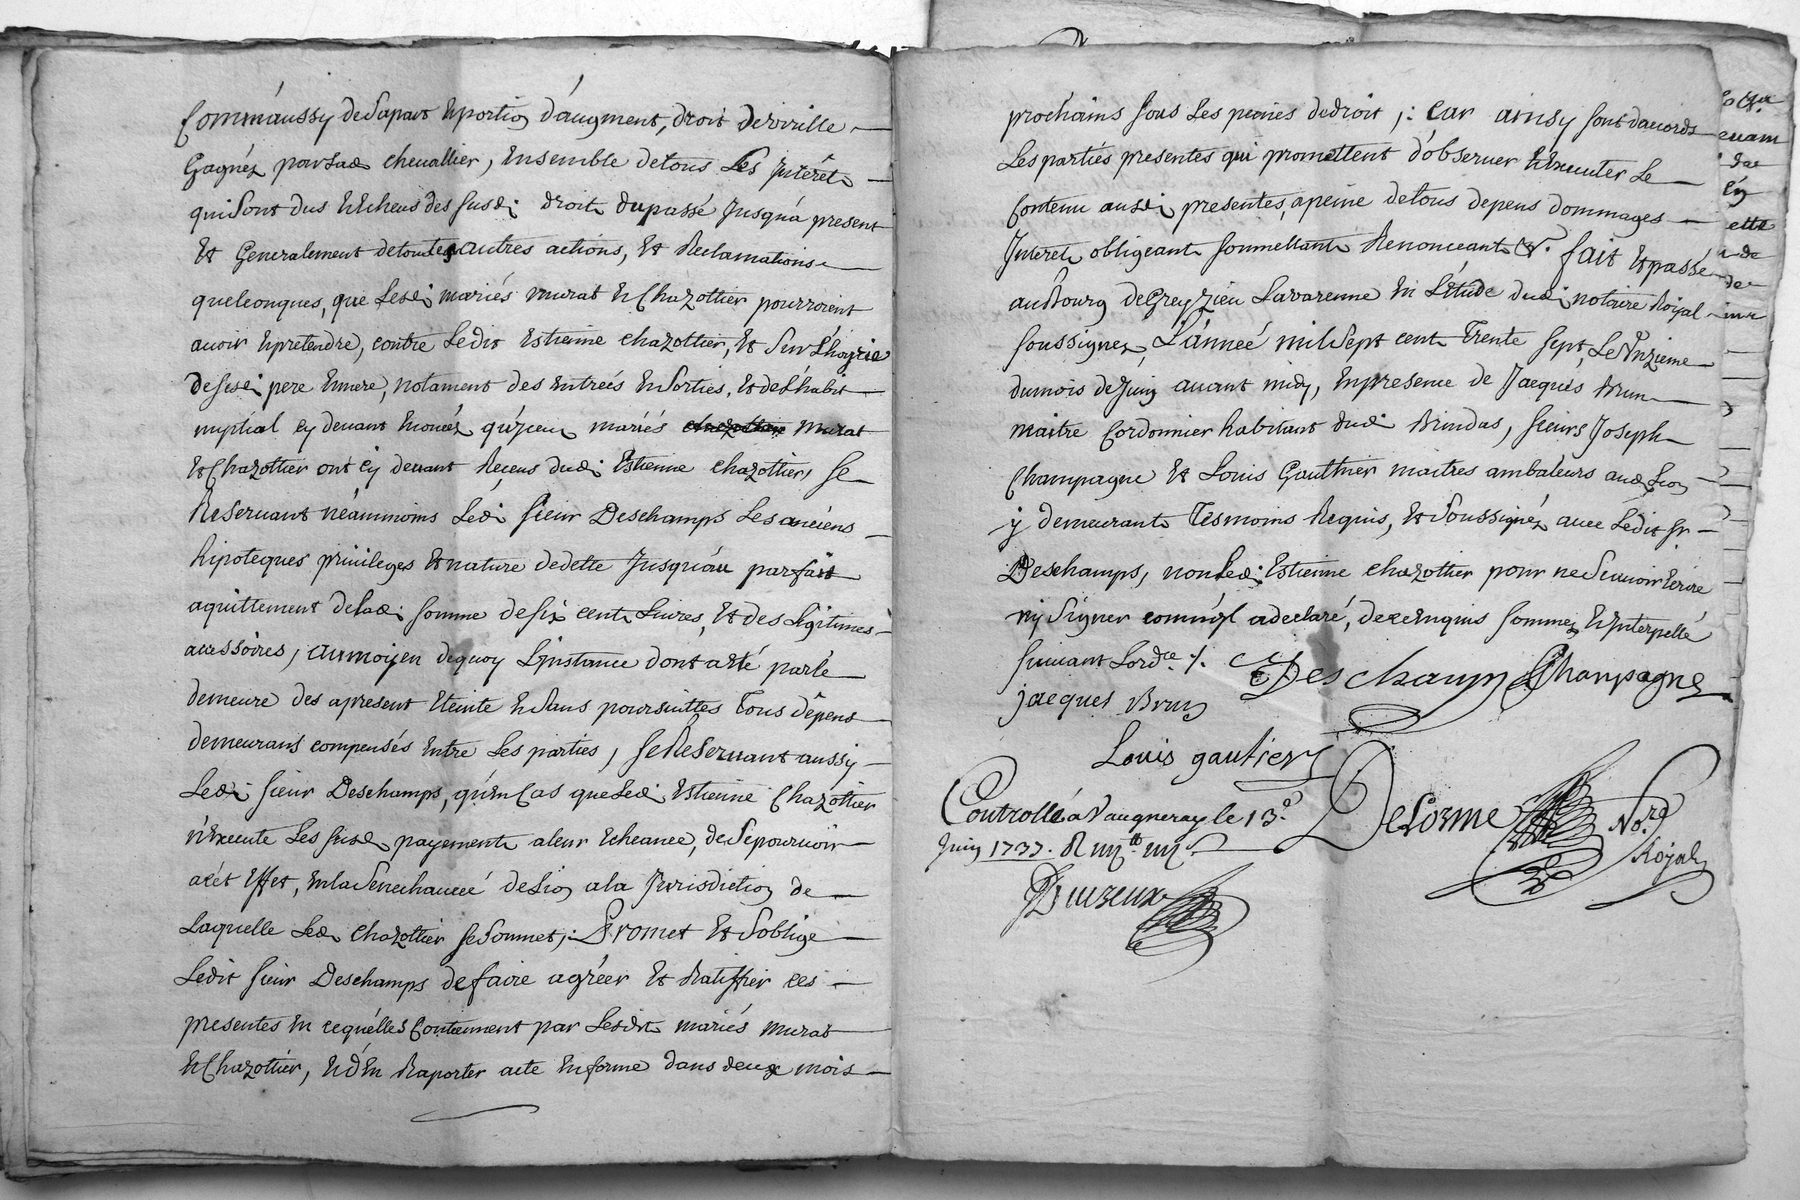 Comm'aussy de sa part et portion d'augment, droit de virille
Gagnéz par lad. chevallier, Ensemble de tous Les Jnterêts
qui sont dus et Echeus des susd. droits du passé Jusqu'a present
Et Generalement de toutes autres actions, Et Reclamations
quelconques, que Lesd. mariés murat et Chazottier pourroient
avoir et pretendre, contre Ledit Estienne chazottier, Et sur L'hoyrie
de sesd. pere et mere, notament des Entreés et sorties, Et de L'habit
nuptial cy devant Enoncéz qu'jceux mariés chazottier murat
et Chazottier ont cy devant Receus dud. Estienne chazottier, se
Reservant néammoins Led. sieur Deschamps Les anciens
hipoteques privileges Et nature de dette Jusqu'au parfait
aquittement de lad. somme de six cent Livres, Et des Légitimes
accessoires, au moyen de quoy L'jnstance dont a eté parlé
demeure des apresent Eteinte et sans poursuittes Tous dépens
demeurans compensés Entre Les parties, se Reservant aussy
Led. sieur Deschamps, qu'en Cas que Led. Estienne Chazottier
n'Execute Les susd. payements a leur Echeance, de se pourvoir
a cét Effet, En la Senechaucée de Lion a la Jurisdiction de
Laquelle Led. chazottier se soumet; Promet Et s'oblige
Ledit sieur Deschamps de faire agréer Et Ratiffier ces
presentes En ce qu'elles Contiennent par Lesdts mariés murat
et Chazottier, et d'En Raporter acte En forme dans deux mois
prochains sous Les peines de droit; Car ainsy sont d'acords
Les partiés presentes qui promettent d'observer et Executer Le
Contenu ausd. presentes, a peine de tous depens dommages
Jnterets obligeant soumettants Renonceants &. fait Et passé
au Bourg de Greyzieu Lavarenne En L'étude dud. notaire Royal
soussigné, L'année mil sept cent Trente sept, Le Onzieme
du mois de Juin avant midy, En presence de Jacques Brun
maitre Cordonnier habitant dud. Brindas, sieurs Joseph
Champagne Et Louis Gauthier maitres ambaleurs aud. Lion
y demeurants Tesmoins Requis, Et soussignéz avec Ledit sr
Deschamps, non Led. Estienne chazottier pour ne Scavoir Ecrire
ny signer comm'jl a declaré, de ce enquis sommé et Jnterpellé
suivant Lordce ./.
Deschamps Champagne
jacques Brun
Louis gautier
Controllé a Vaugneray le 13e
Juin 1737.
DeLorme No.re
Royal